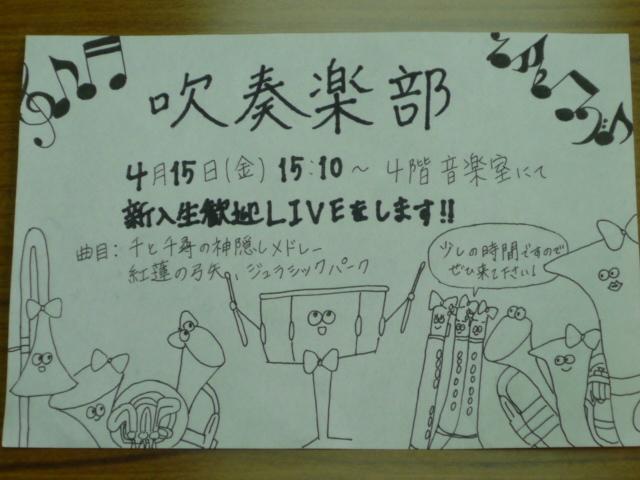 吹奏楽部
4月15日(金) 15:10〜 4階音楽室にて
新入生歓迎LIVEをします!!
曲目:千と千尋の神隠しメドレー
紅蓮の弓矢、ジュラシックパーク
少しの時間ですので
ぜひ来て下さい!